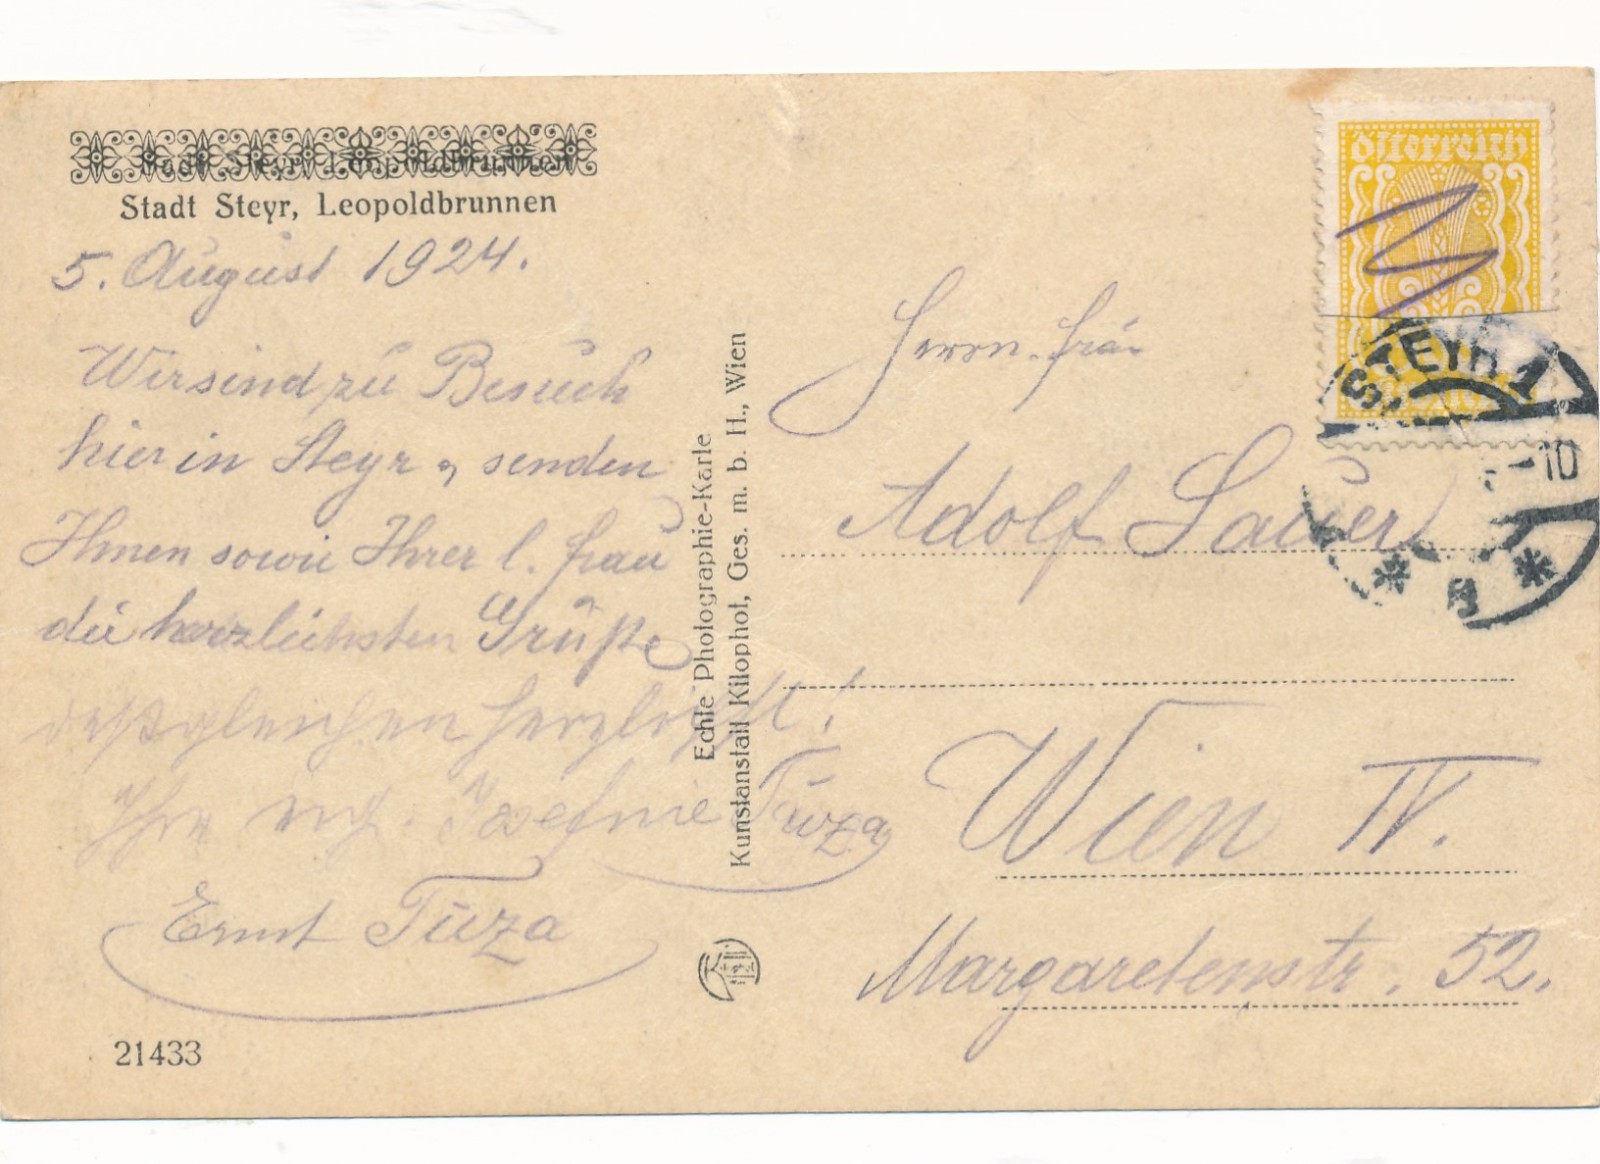 Stadt Steyr, Leopoldbrunnen
Stadt Steyr, Leopoldbrunnen
5. August 1924.
Wir sind zu Besuch
hier in Steyr, senden
Ihnen sowie Ihrer l. Frau
die herzlichsten Grüße
deßgleichen herzlichst!
Ihre Josefine Tuza
Ernst Tuza
21433
Echte Photographie-Karte
Kunstanstalt Kilophot, Ges. m. b. H., Wien
Österreich
STEYR 1
10
Herrn
Adolf Sauer
Wien IV.
Margaretenstr. 52.